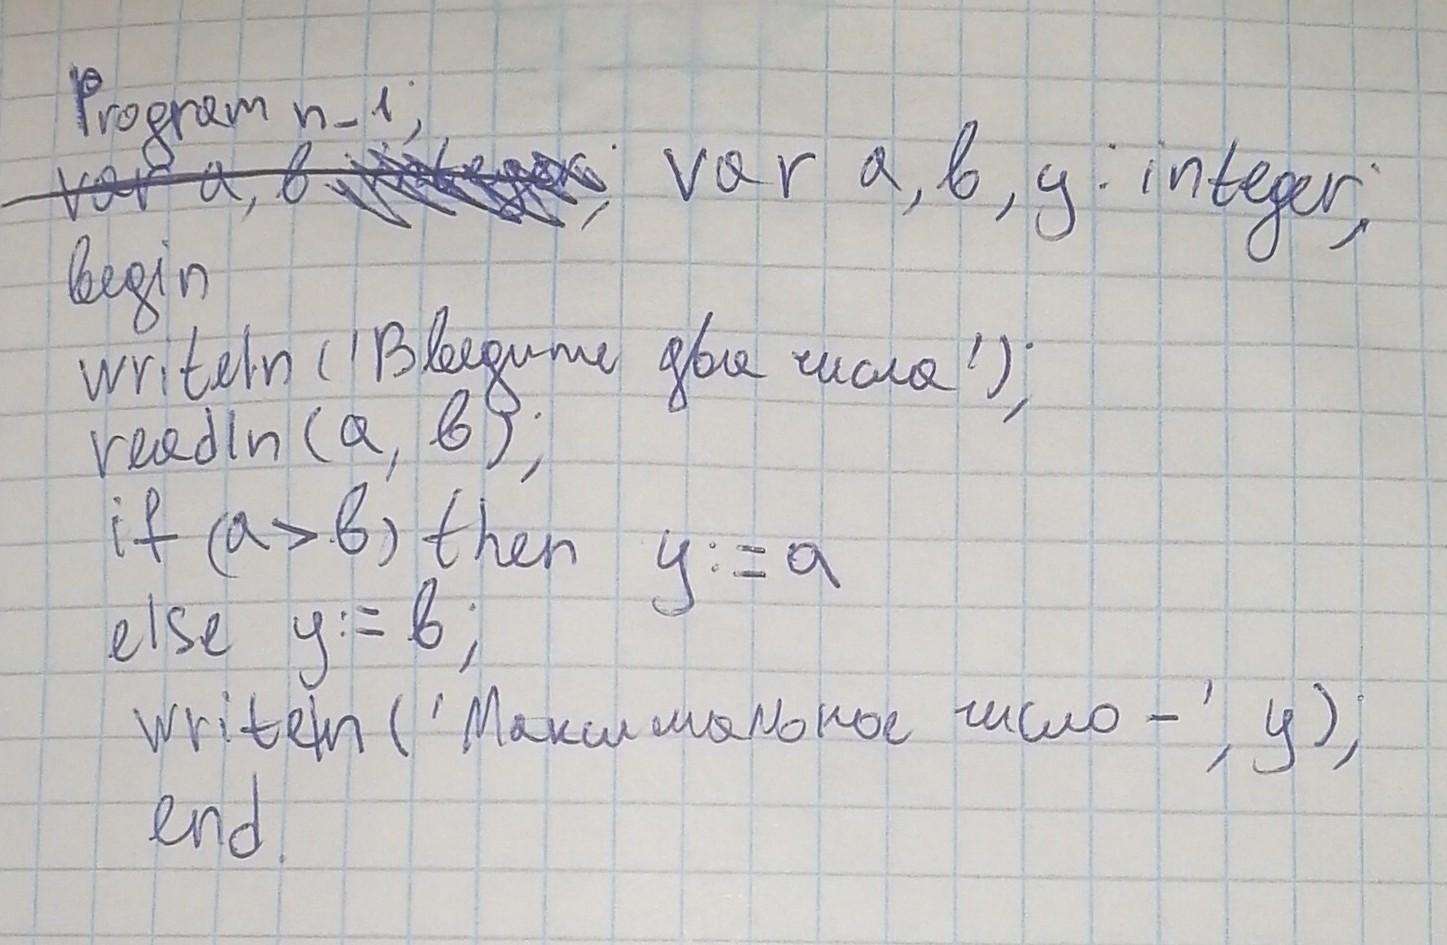 Program n_1;
var a, b integer; var a, b, y: integer;
begin
writeln ('Введите два числа');
readln (a, b);
if (a > b) then y := a
else y := b;
writeln ('Максимальное число -', y);
end.